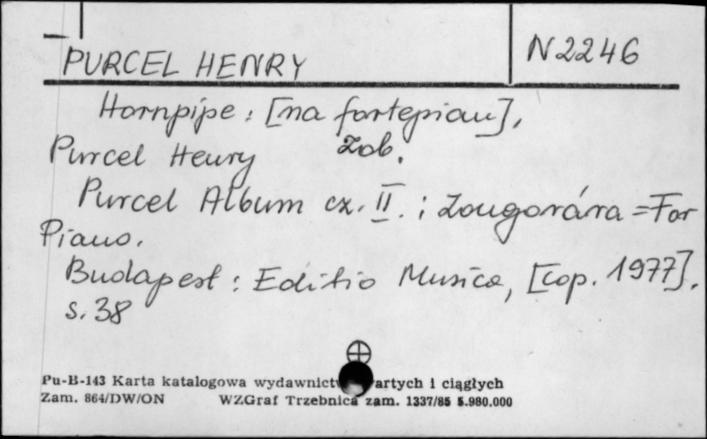 PURCEL HENRY
N 2246
Hornpipe : [na fortepian],
Zob.
Purcel Henry
Purcel Album cz. II. : Zongorára = For
Piano.
Budapest : Editio Musica, [cop. 1977].
s. 38
Pu-B-143 Karta katalogowa wydawnictw zwartych i ciągłych
Zam. 864/DW/ON WZGraf Trzebnica zam. 1337/85 5.980.000